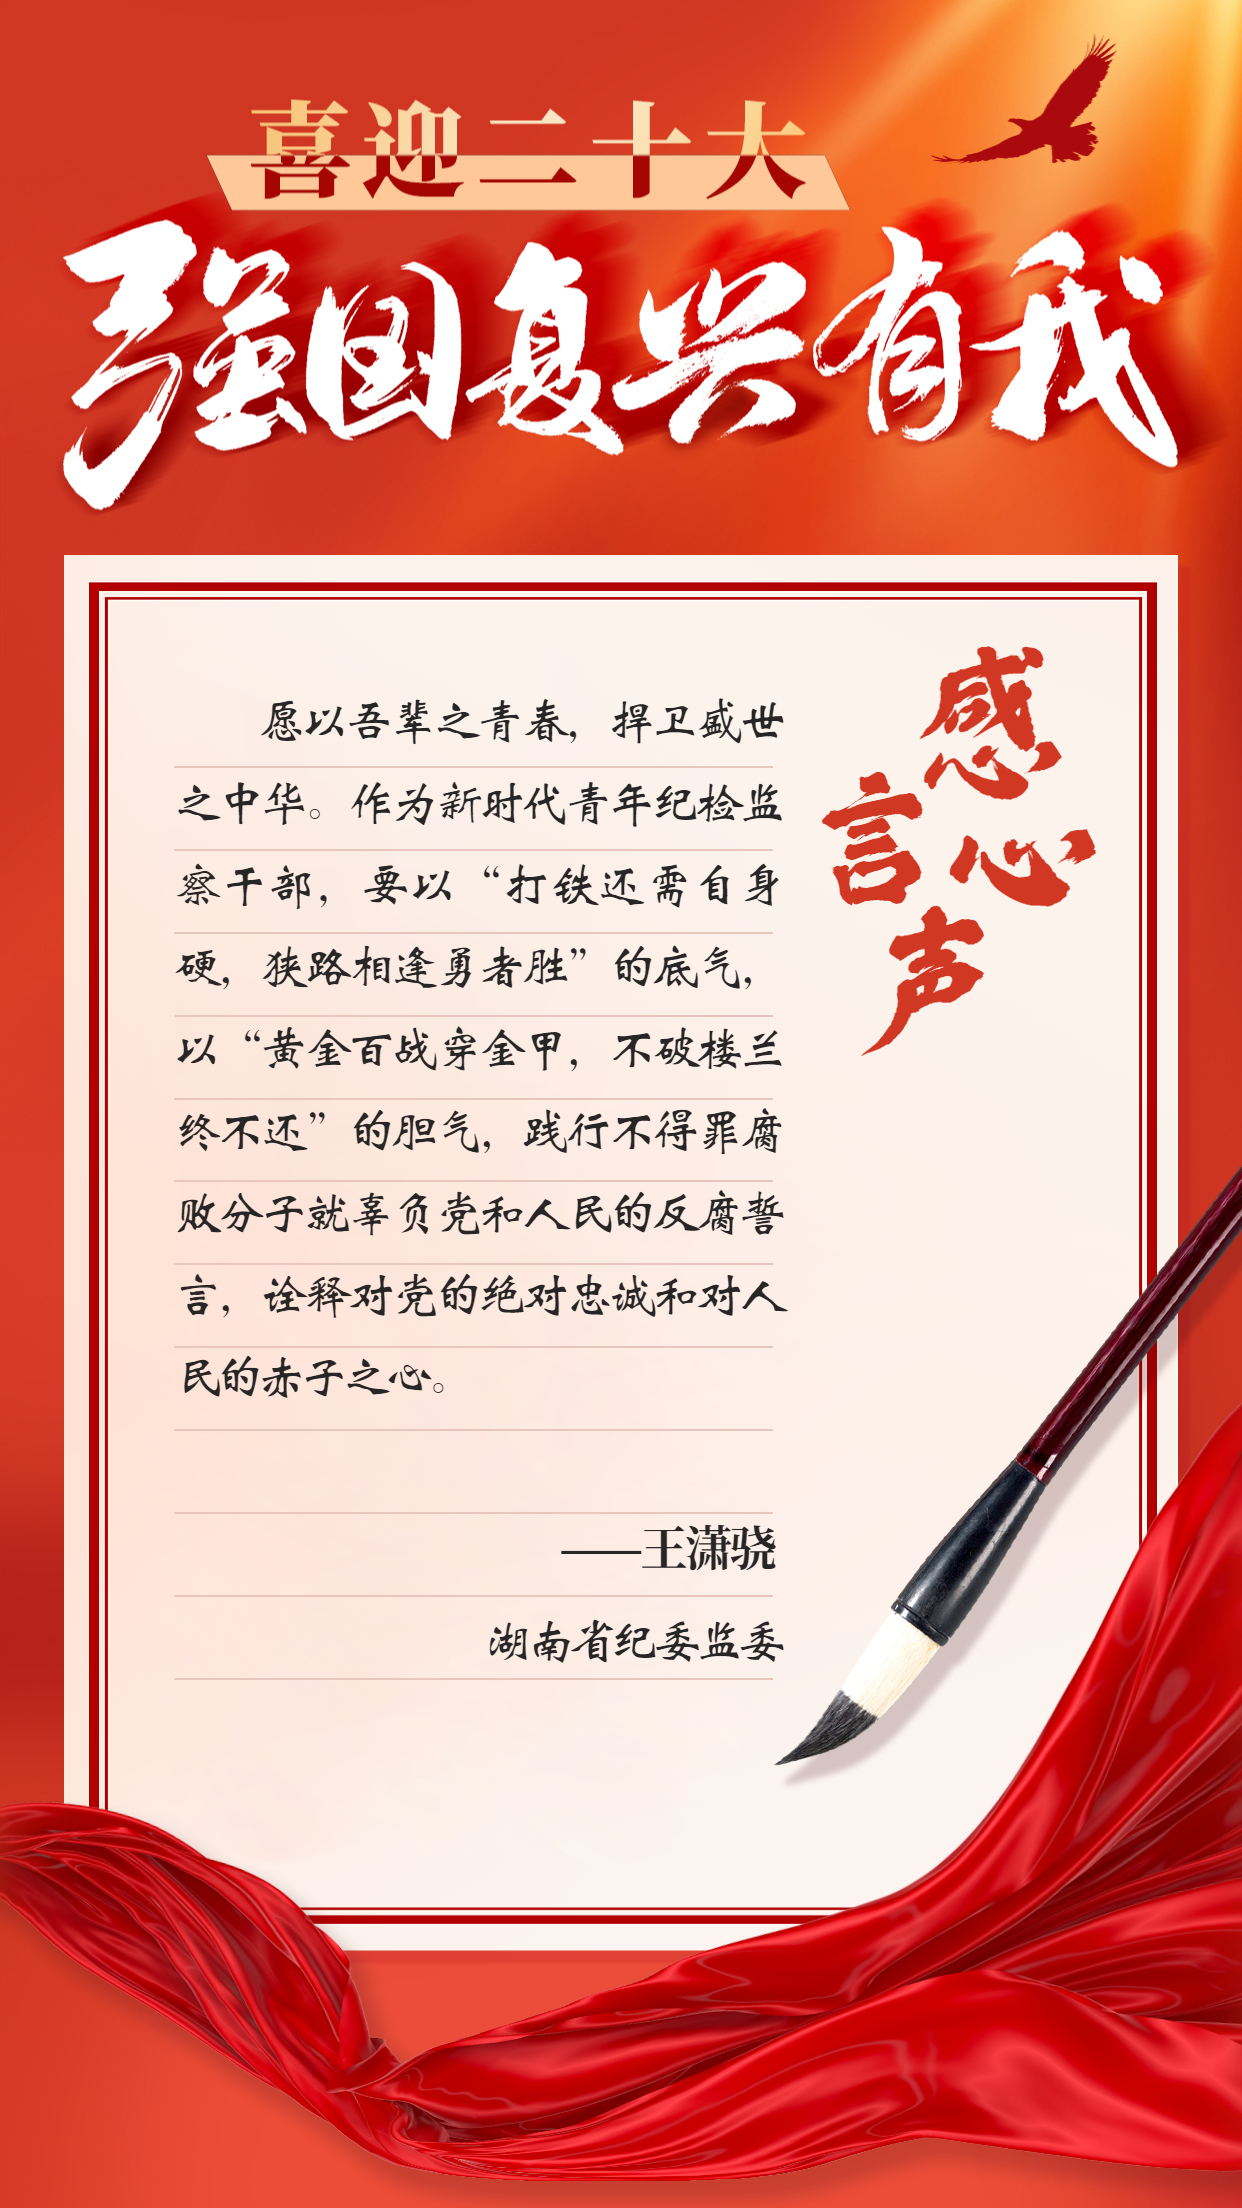 喜迎二十大
强国复兴有我
感言心声
愿以吾辈之青春，捍卫盛世
之中华。作为新时代青年纪检监
察干部，要以“打铁还需自身
硬，狭路相逢勇者胜”的底气，
以“黄金百战穿金甲，不破楼兰
终不还”的胆气，践行不得罪腐
败分子就辜负党和人民的反腐誓
言，诠释对党的绝对忠诚和对人
民的赤子之心。
——王潇骁
湖南省纪委监委